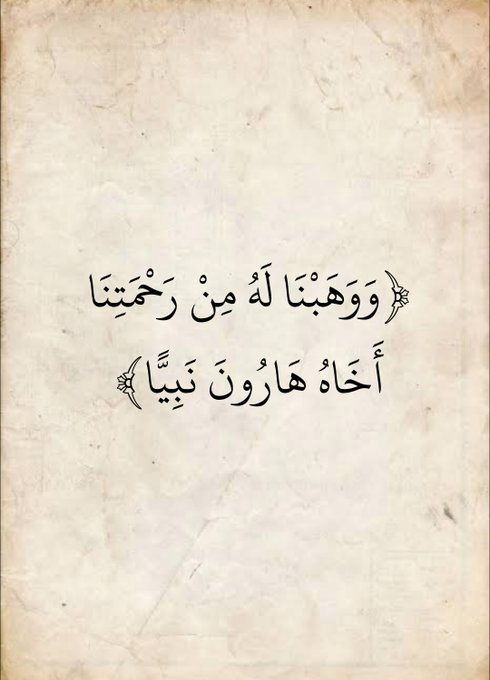 ﴿وَوَهَبْنَا لَهُ مِنْ رَحْمَتِنَا
أَخَاهُ هَارُونَ نَبِيًّا﴾